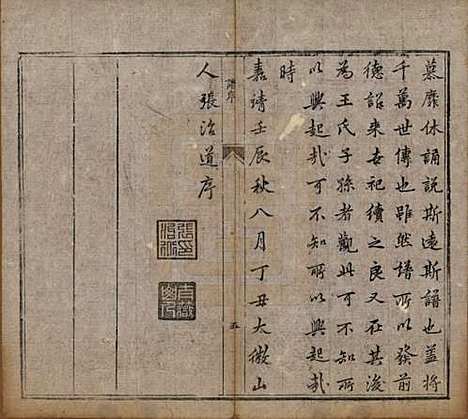 慕靡休誦說斯遠斯譜也蓋將
千萬世傳也雖然譜所以發前
德詔來去祀續之良又在其後
為王氏子孫者觀此可不知所
以興起哉可不知所以興起哉
時
嘉靖壬辰秋八月丁丑太微山
人張治道序
譜序
五